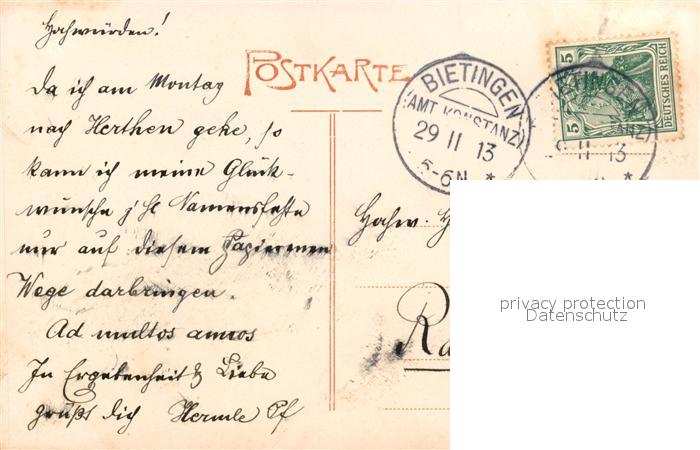 Hochwürden!
POSTKARTE
Da ich am Montag
nach Herthen gehe, so
kann ich meine Glück-
wünsche z. hl. Namensfeste
nur auf diesem Papiernen
Wege darbringen.
Ad multos annos
In Ergebenheit & Liebe
grüßt dich Hermle Pf
BIETINGEN
(AMT KONSTANZ)
29 II 13
5-6N *
BIETINGEN
II 13
*
5
5
DEUTSCHES REICH
Hochw. H
Ra
privacy protection
Datenschutz